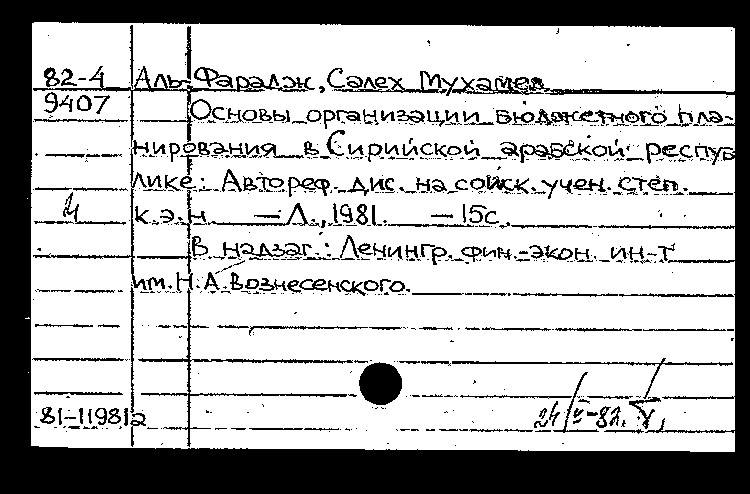 82-4 Аль-Фарадж, Салех Мухамед
9407 Основы организации бюджетного пла-
нирования в Сирийской арабской респуб
лике: Автореф. дис. на соиск. учен. степ.
к.э.н. — Л., 1981. — 15с.
В надзаг.: Ленингр. фин.-экон. ин-т
им. Н.А. Вознесенского.
81-119812